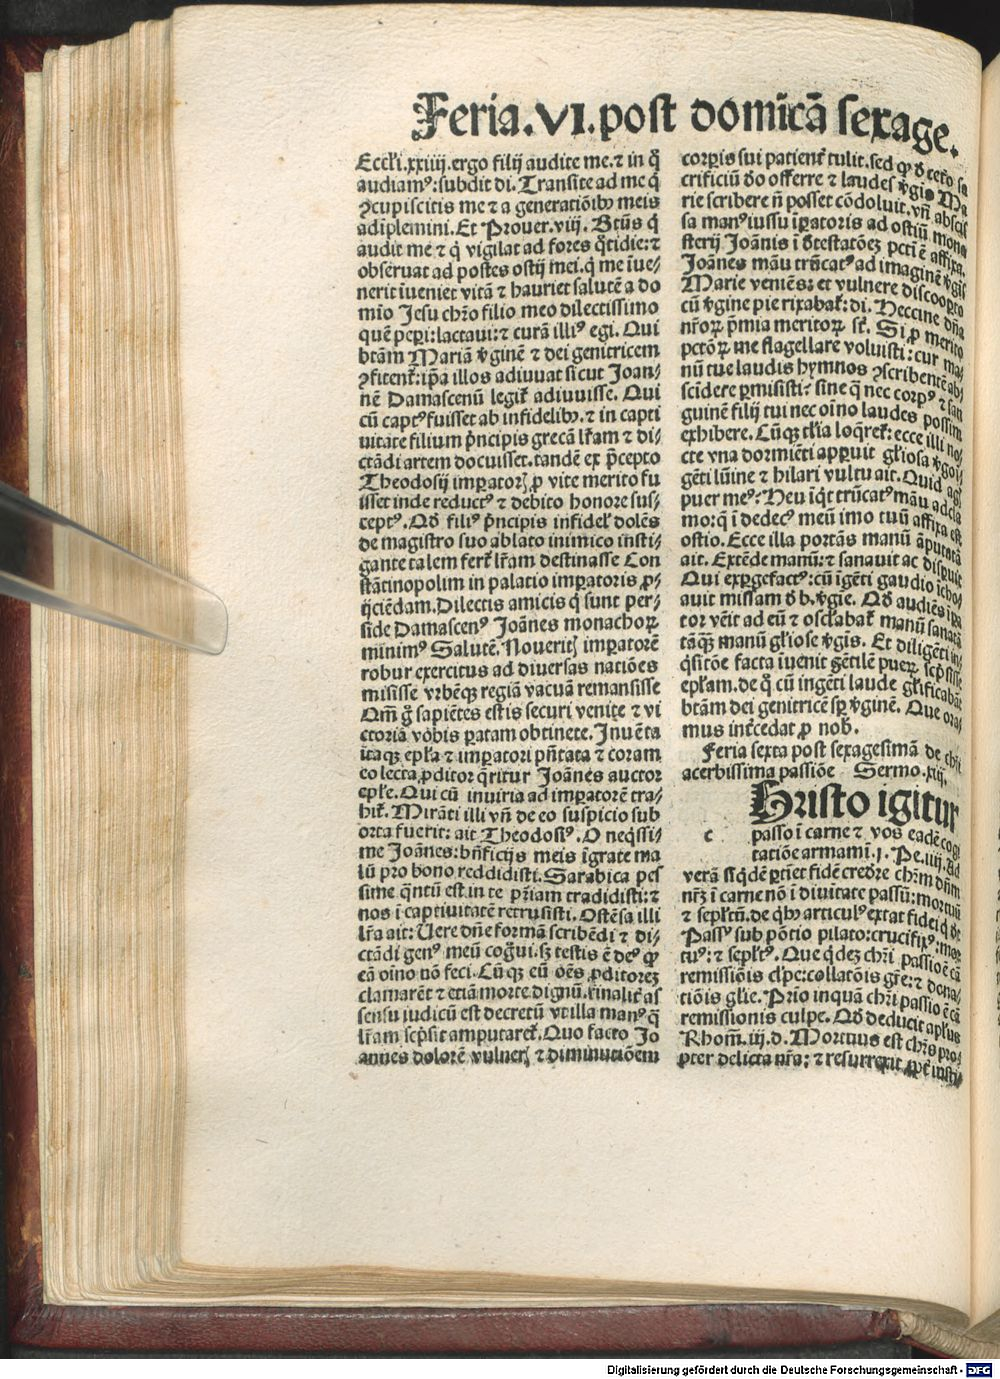 Feria.VI.post domīcā sexage.
Eccli.xxiiij.ergo filij audite me.⁊ in q̄
audiamꝰ:subdit di. Transite ad me q̄
ꝯcupiscitis me ⁊ a generatiōibꝰ meis
adīplemini. Et Prouer.viij. Btūs q̄
audit me ⁊ q̄ vigilat ad fores q̄tidie:⁊
obseruat ad postes ostij mei.q̄ me īue-
nerit īueniet vitā ⁊ hauriet salutē a do
mīo Jesu chr̄o filio meo dilectissimo
quē peꝑi:lactaui:⁊ curā illiꝰ egi. Qui
btām Mariā v̄ginē ⁊ dei genitricem
ꝯfitent᷑:ip̄a illos adiuuat sicut Joan-
nē Damascenū legit᷑ adiuuisse. Qui
cū captꝰ fuisset ab infidelibꝰ.⁊ in capti
uitate filium p̄ncipis grecā lr̄am ⁊ di-
ctādi artem docuisset.tandē ex p̄cepto
Theodosij imꝑatorꝭ ꝓ vite merito fu
isset inde reductꝰ ⁊ debito honore sus-
ceptꝰ. Qd̄ filiꝰ p̄ncipis infidel' dolēs
de magistro suo ablato inimico insti-
gante talem fert᷑ lr̄am destinasse Con
stātinopolim in palatio imꝑatoris ꝓ-
ijciēdam. Dilectis amicis q̄ sunt per-
side Damascenꝰ Joānes monachoꝝ
minimꝰ Salutē. Noueritꝭ imꝑatorē
robur exercitus ad diuersas natiōes
misisse vrbēqꝫ regiā vacuā remansisse
Qm̄ g̊ sapiētes estis securi venite ⁊ vi
ctoriā vobis ꝑatam obtinete. Inuēta
itaqꝫ epl̄a ⁊ imꝑatori pn̄tata ⁊ coram
eo lecta ꝓditor q̄ritur Joānes auctor
epl̄e. Qui cū inuiria ad imꝑatorē tra-
hit᷑. Mirāti illi vn̄ de eo suspicio sub
orta fuerit: ait Theodosiꝰ. O neq̄ssi-
me Joānes:bn̄ficijs meis īgrate ma
lū pro bono reddidisti. Sarabica pes
sime q̄ntū est.in te pr̄iam tradidisti:⁊
nos ī captiuitatē retrusisti. Ostēsa illi
lr̄a ait: Uere dn̄e formā scribēdi ⁊ di-
ctādi genꝰ meū coḡui.sꝫ testis ē deꝰ qꝙ
eā oīno nō feci. Cūqꝫ eū oēs ꝓditoreꝫ
clamarēt ⁊ etiā morte dignū.finalit᷑ as
sensu iudicū est decretū vt illa manꝰ q̄
lr̄am scp̄sit amputaret᷑. Quo facto Jo
annes dolorē vulnerꝭ ⁊ diminutiōem
corꝑis sui patient᷑ tulit.sed qꝙ d̄ cet᷑o sa
crificiū d̄o offerre ⁊ laudes v̄gis Ma
rie scribere n̄ posset cōdoluit.vn̄ abscis
sa manꝰ iussu īꝑatoris ad ostiū mona
sterij Joānis ī d̄testatōeꝫ pctī ē affixa.
Joānes māu trūcatꝰ ad imaginē v̄gis
Marie veniēs: et vulnere discooꝑto
cū v̄gine pie rixabat᷑: di. Heccine dn̄a
nr̄oꝝ p̄mia meritoꝝ st̄. Si ꝓ merito
pctōꝝ me flagellare voluisti: cur ma-
nū tue laudis hymnos ꝯscribentē ab-
scidere ꝑmisisti? sine q̄ nec corpꝰ ⁊ san
guinē filij tui nec oīno laudes possim
exhibere. Cūqꝫ tl̄ia loq̄ret᷑: ecce illi no-
cte vna dormiēti apꝑuit gl̄iosa v̄go ī-
gēti lūine ⁊ hilari vultu ait. Quid agis
puer meꝰ: Heu īq̄t trūcatꝰ māu ad cla
mo:q̄ ī dedecꝰ meū imo tuū affixa est
ostio. Ecce illa portās manū āputatā
ait. Extēde manū: ⁊ sanauit ac disꝑuit
Qui exꝑgefactꝰ: cū īgēti gaudio icho-
auit missam d̄ b. v̄gīe. Qd̄ audiēs īꝑa
tor vēit ad eū ⁊ oscl̄abat᷑ manū sanatā
tāqꝫ manū gl̄iose v̄gis. Et diligēti in-
q̄sitōe facta īuenit gētilē pueꝝ scp̄sisse
epl̄am.de q̄ cū ingēti laude gl̄ificabāt
btām dei genitricē sꝑ v̄ginē. Que ora-
mus int᷑cedat ꝓ nob̄.
Feria sexta post sexagesimā de chr̄i
acerbissima passiōe Sermo.xij.
Hristo igitur
c passo ī carne ⁊ vos eadē cogi
tatiōe armamī.j.Pe.iiij. Ad
verā siq̄dē ꝑtiet fidē credr̄e chr̄m dn̄m
nr̄ꝫ ī carne nō ī diuītate passū: mortuū
⁊ sepl̄tū.de qb̄ꝰ articulꝰ extat fidei q̄ dr̄
Passꝰ sub pōtio pilato:crucifixꝰ: mor
tuꝰ: ⁊ sepl̄tꝰ. Que q̄deꝫ chr̄i passio ē cā
remissiōis cl̄pe:collatōis gr̄e:⁊ dona-
tiōis gl̄ie. Prīo inquā chr̄i passio ē cā
remissionis culpe. Qd̄ deducit apl̄us
Rhom̄.iij.d. Mortuus est chr̄s pro-
pter delicta nr̄a: ⁊ resurrexit ꝓpt᷑ iusti-
Digitalisierung gefördert durch die Deutsche Forschungsgemeinschaft - DFG